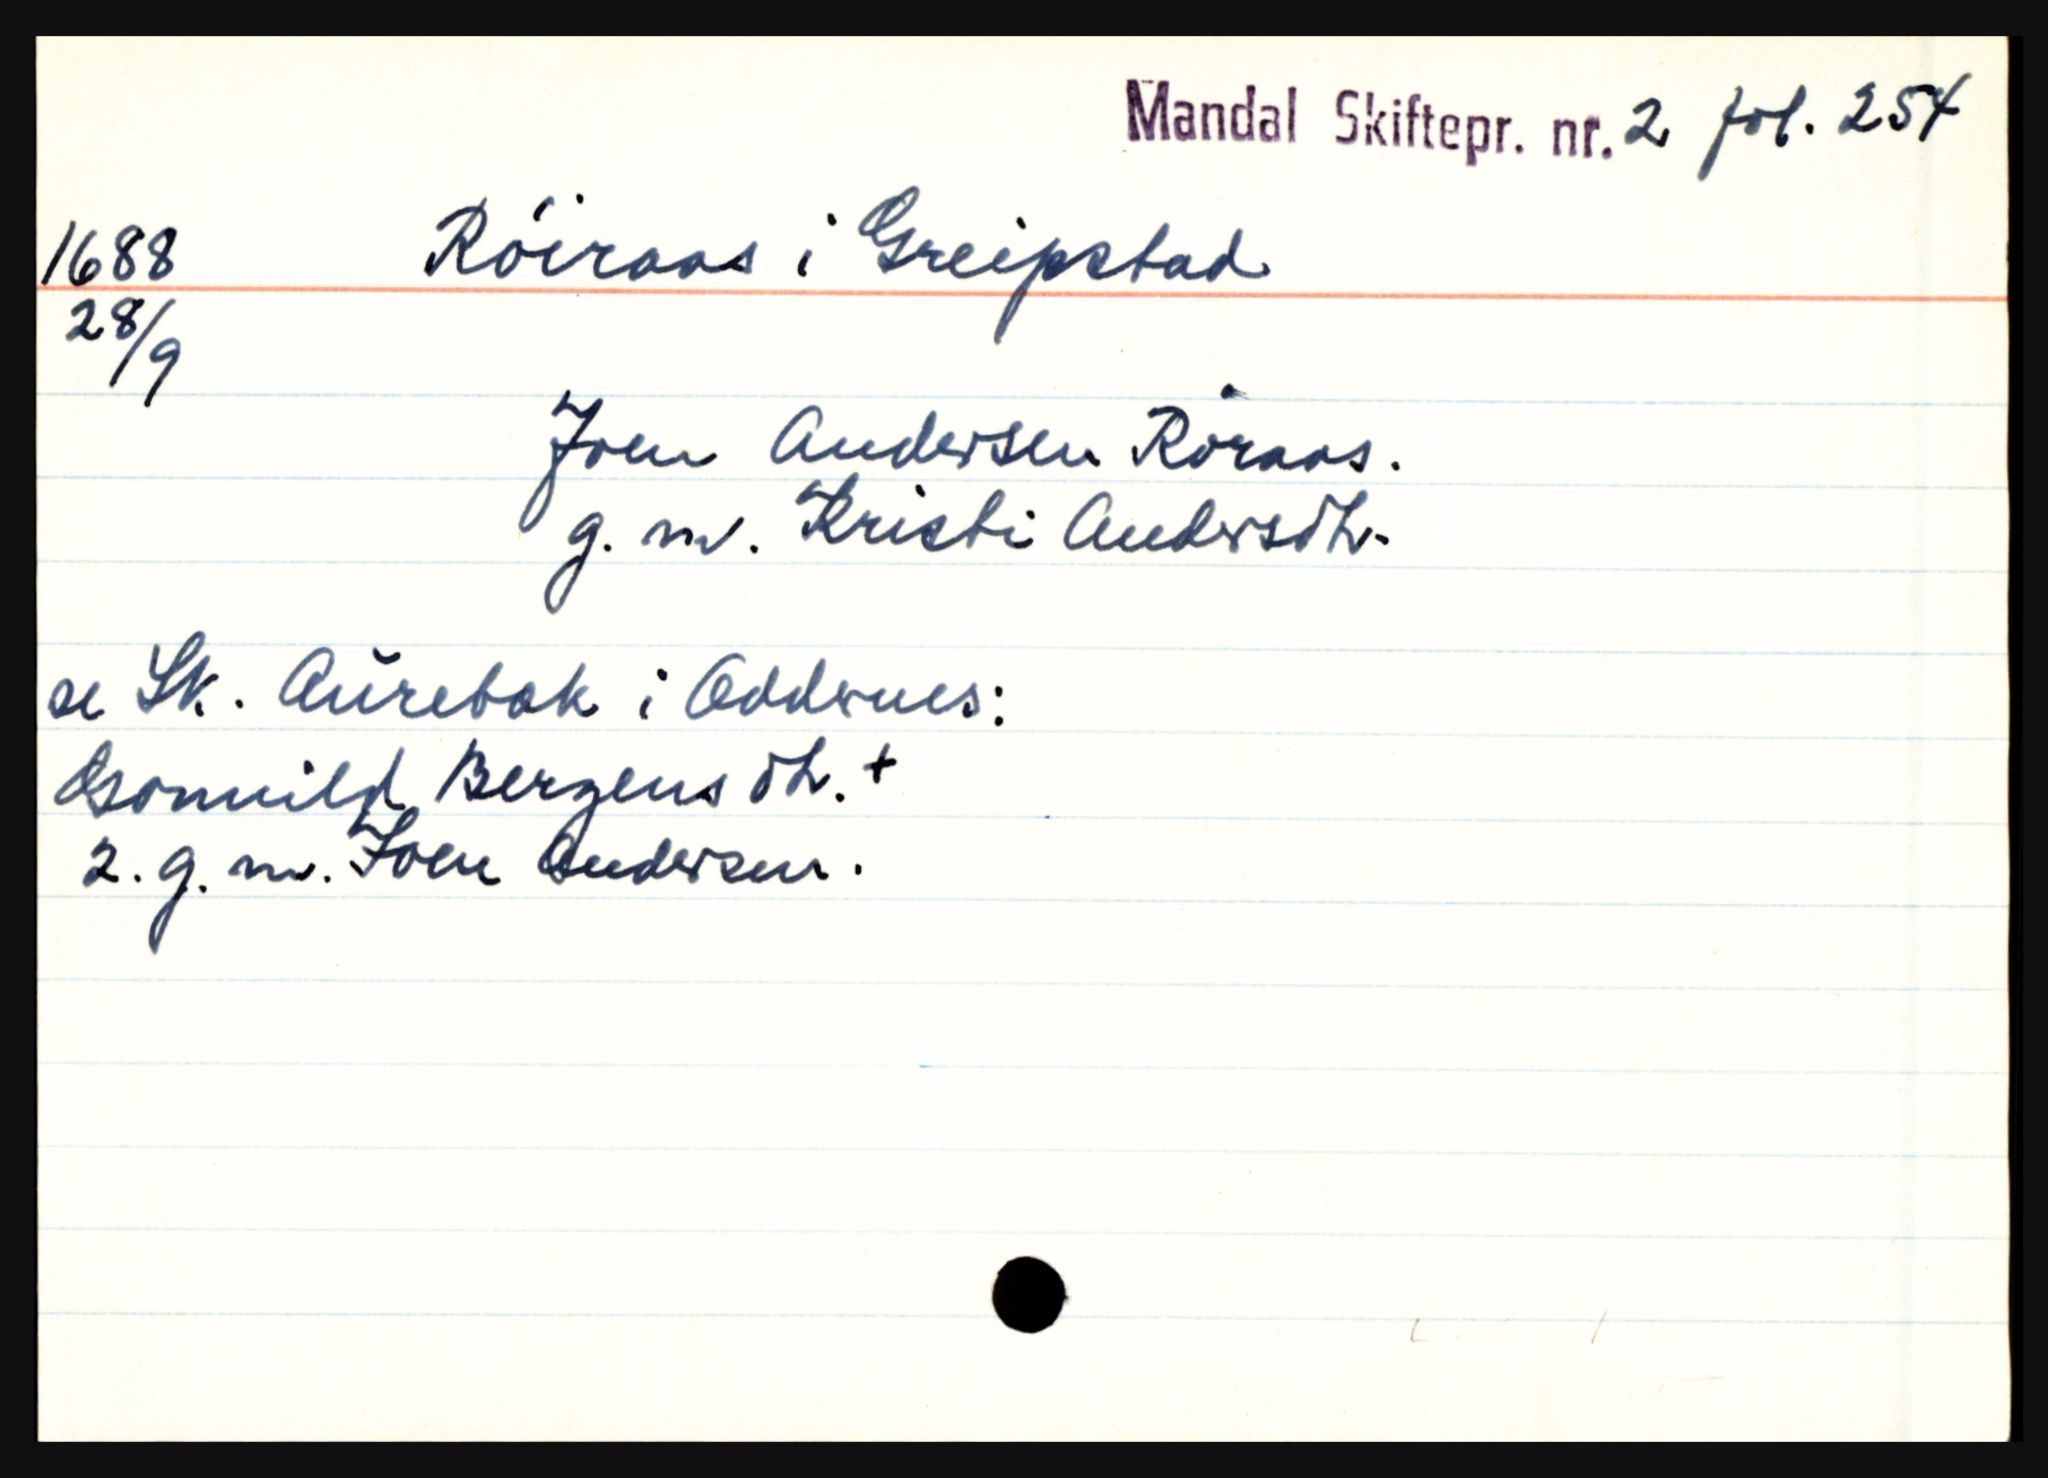 Mandal Skiftepr. nr. 2 fol. 254
1688 Röiraas i Greipstad
28/9
Joen Andersen Röraas.
g. m. Kristi Andersdtr.
se Sk. Aŭrebak i Oddernes:
Gonnild Bergensdtr. +
2. g. m. Joen Andersen.